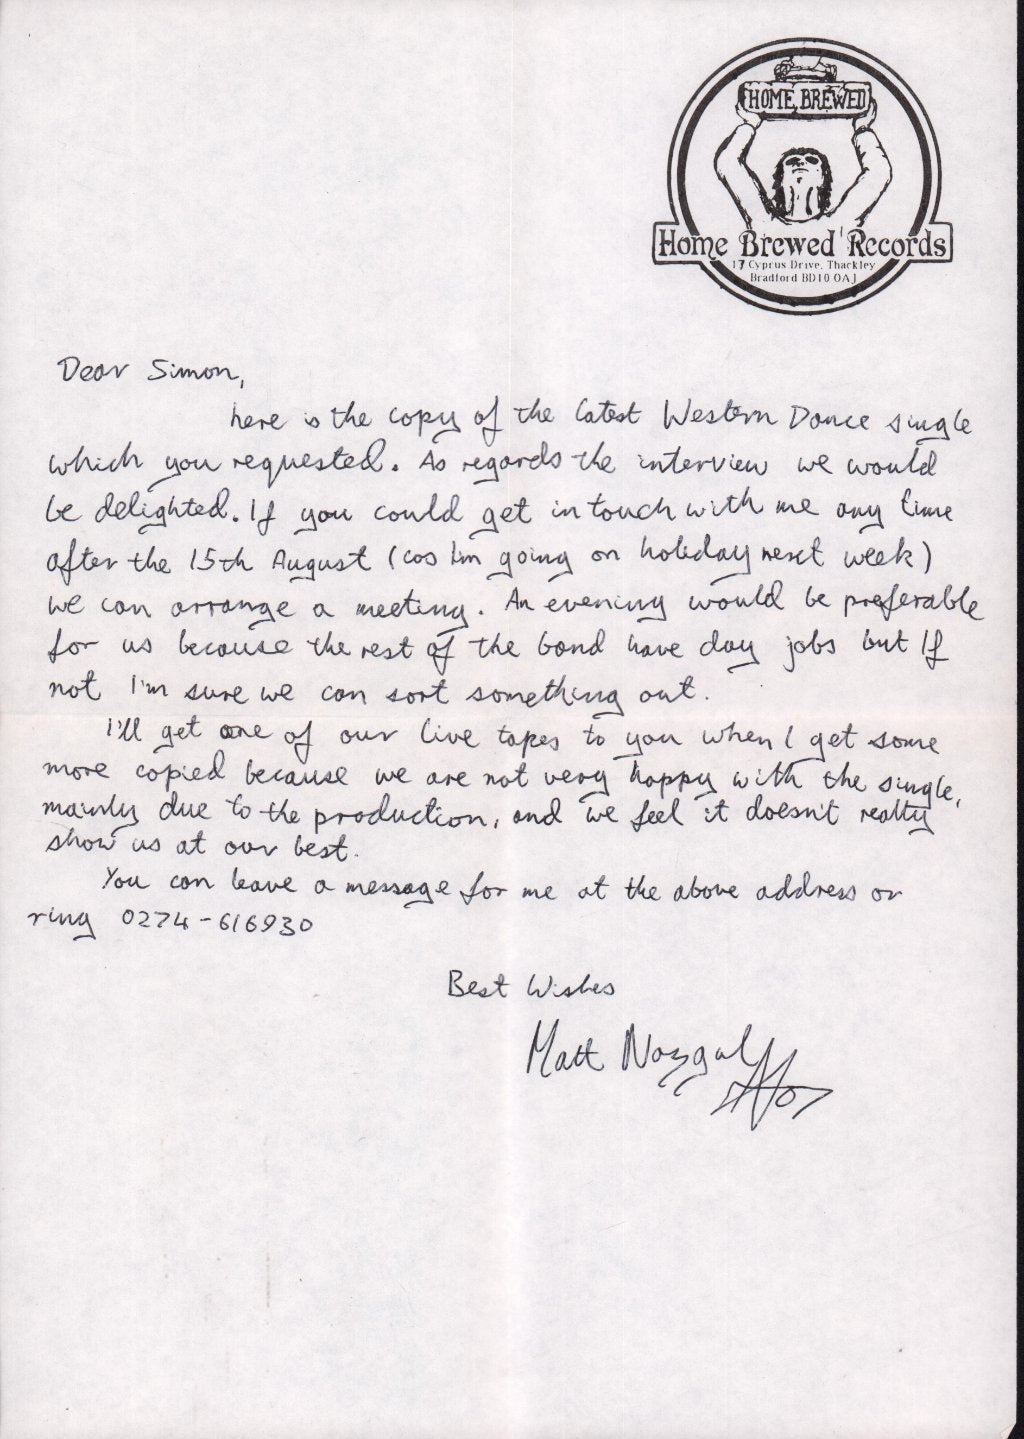 HOME BREWED
Home Brewed Records
17 Cyprus Drive, Thackley
Bradford BD10 OAJ
Dear Simon,
here is the copy of the latest Western Dance single
which you requested. As regards the interview we would
be delighted. If you could get in touch with me any time
after the 15th August (cos I'm going on holiday next week)
we can arrange a meeting. An evening would be preferable
for us because the rest of the band have day jobs but If
not I'm sure we can sort something out.
I'll get one of our live tapes to you when I get some
more copied because we are not very happy with the single,
mainly due to the production, and we feel it doesn't really
show us at our best.
You can leave a message for me at the above address or
ring 0274-616930
Best Wishes
Matt Nazgul